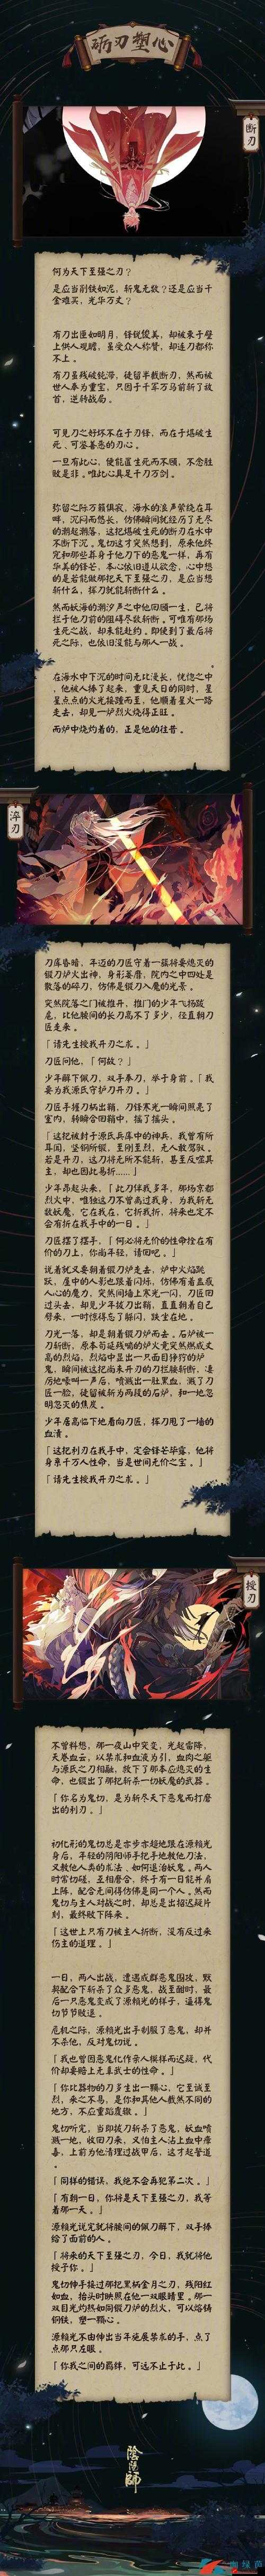 砺刃塑心
断刃
何为天下至强之刃？
是应当削铁如泥，斩鬼无数？还是应当千
金难买，光华万丈？
有刀出匣如明月，锋锐俊美，却被束于壁
上供人观瞻，虽受众人称誉，却连刀都称
不上。
有刀虽残破钝滞，徒留半截断刃，然而被
世人奉为重宝，只因于千军万马前斩了敌
首，逆转战局。
可见刀之好坏不在于刀锋，而在于堪破生
死、可鉴善恶的刀心。
一旦有此心，便能置生死而不顾，不念胜
败是非。唯此心真足千刀万剑。
弥留之际万籁俱寂，海水的浪声萦绕在耳
畔，沉闷而悠长，仿佛瞬间就经历了无尽
的潮起潮落，这把堪破生死的断刃在水中
不断下沉。鬼切这才突然想到，原来他终
究和那些葬身于他刀下的恶鬼一样，再有
华美的锋芒，本心依旧遵从欲念，心中想
的是若能做那把天下至强之刃，是应当想
斩什么，挥刀就能斩断什么。
然而妖海的潮汐声之中他回顾一生，已将
拦于他刀前的阻碍尽数斩断，可唯有那场
生死之战，却未能赴约，即使到了最后将
死之际，也依旧没能与那人一战。
在海水中下沉的时间无比漫长，恍惚之中
，他被人捧了起来，重见天日的同时，星
星点点的火光接踵而至，他顺着星火一路
走去，却见一炉烈火烧得正旺。
而炉中烧灼着的，正是他的往昔。
淬刃
刀库昏暗，年迈的刀匠守着一盏将要熄灭的
锻刀炉火出神，身形萎靡，院内之中四处是
散落的碎刀，仿佛是锻刀入魔的光景。
突然院落之门被推开，推门的少年飞扬跋
扈，比他腰间的长刀高不了多少，径直朝刀
匠走来。
「请先生授我开刃之术。」
刀匠问他，「何故？」
少年解下佩刀，双手奉刀，举于身前。「我
要为我源氏守护刀开刃。」
刀匠手握刀柄出鞘，刀锋寒光一瞬间照亮了
室内，转瞬合回鞘中，摇了摇头。
「这把被封于源氏兵库中的神兵，我曾有所
耳闻，坚钢所锻，至刚至烈，无人敢驾驭。
若是开刃，这刀将无所不能斩，甚至反噬其
主，却也因此易折……」
少年昂起头来，「此刀伴我多年，那场京都
烈火中，唯独这刀不曾离过我身，为我斩无
数妖魔，它在我在，它折我折，将来也定不
会有折在我手中的一日。」
刀匠摆了摆手，「何必将无价的性命拴在有
价的刀上，你尚年轻，请回吧。」
说着就又要朝着锻刀炉走去，炉中火焰跳
跃，屋中的人影也跟着闪烁，仿佛有着蛊惑
人心的魔力，突然间墙上寒光一闪，刀匠回
过头去，却见少年拔刀出鞘，直直朝着自己
劈来，一时惊得忘了躲闪，跌坐在地。
刀光一落，却是朝着锻刀炉而去。石炉被一
刀斩断，原本苟延残喘的炉火竟突然燃成丈
高的烈焰，烈焰中显出一只面目狰狞的炉
鬼，瞬间被这把尚未开刃的刀拦腰斩断，凄
厉地嚎叫一声后，喷溅出一肚黑血，溅了刀
匠一脸，徒留被斩为两段的石炉，和一地忽
明忽灭的焦炭。
少年居高临下地看向刀匠，挥刀甩了一墙的
血渍。
「这把利刃在我手中，定会锋芒毕露，他将
身系千万人性命，当是世间无价之宝。」
「请先生授我开刃之术。」
授刃
不曾料想，那一夜山中突变，光起雷降，
天卷血云，以禁术和血液为引，血肉之躯
与源氏之刀相融，救下了那本应熄灭的生
命，也锻出了那把斩杀一切妖魔的武器。
「你名为鬼切，是为斩尽天下恶鬼而打磨
出的利刃。」
初化形的鬼切总是亦步亦趋地跟在源赖光
身后，年轻的阴阳师手把手地教他刀法，
又教他人类的术法、如何退治妖鬼。两人
时常切磋，互相磨合，终于有一日能并肩
上阵，配合无间得仿佛是同一个人。然而
鬼切与主人对战之时，却总是出招迟疑片
刻，最终败下阵来。
「这世上只有刀被主人折断，没有反过来
伤主的道理。」
一日，两人出战，遭遇成群恶鬼围攻，默
契配合下斩杀了众多恶鬼，战至酣时，最
后一只恶鬼变成了源赖光的样子，逼得鬼
切节节败退。
危机之际，源赖光出手制服了恶鬼，却并
不杀他，反对鬼切说。
「我也曾因恶鬼化作亲人模样而迟疑，代
价却要赔上无辜武士的性命。」
「你比器物的刀多生出一颗心，它至诚至
烈，来之不易，是你和其他人截然不同的
地方，不应重蹈覆辙。」
鬼切听完，当即拔刀斩杀了恶鬼，妖血喷
溅一地，收回刀来，又怕主人沾上血中瘴
毒，上前为他清理过战甲后，这才起誓道
。
「同样的错误，我绝不会再犯第二次。」
「有朝一日，你将是天下至强之刃，我等
着那一天。」
源赖光说完就将腰间的佩刀解下，双手捧
给了面前的人。
「将来的天下至强之刃，今日，我就将他
授予你。」
鬼切伸手接过那把黑柄金月之刀，残阳红
如血，抬头时映照在他一双眼睛里。那一
双目光灼热如同锻刀炉的烈火，可以熔铸
铜铁，塑一颗心。
源赖光不由伸出当年施展禁术的手，点了
点那只左眼。
「你我之间的羁绊，可远不止于此。」
陰陽師